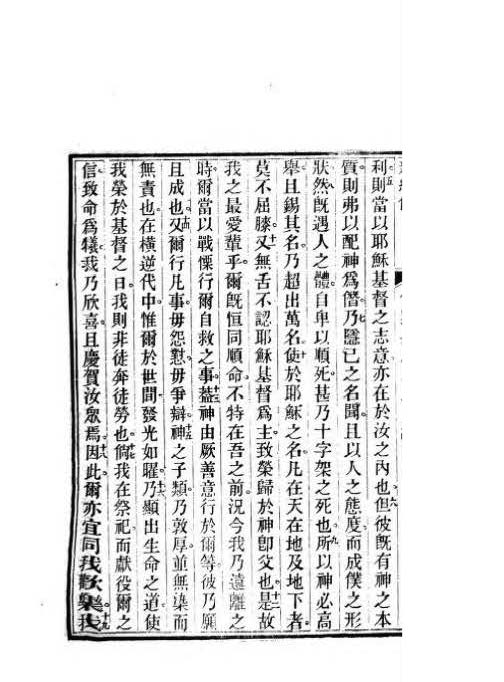 利則當以耶穌基督之志意亦在於汝之內也但彼既有神之本
質則弗以配神爲僭乃隱己之名聞且以人之態度而成僕之形
狀然既遇人之體自卑以順死甚乃十字架之死也所以神必高
舉且錫其名乃超出萬名使於耶穌之名凡在天在地及地下者
莫不屈膝又無舌不認耶穌基督爲主致榮歸於神卽父也是故
我之最愛輩乎爾既恒同順命不特在吾之前況今我乃遠離之
時爾當以戰慄行爾自救之事蓋神由厥善意行於爾等彼乃願
且成也又爾行凡事毋怨懟毋爭辯神之子類乃敦厚並無染而
無責也在橫逆代中惟爾於世間發光如曜乃顯出生命之道使
我榮於基督之日我則非徒奔徒勞也倘我在祭祀而獻役爾之
信致命爲犧我乃欣喜且慶賀汝眾焉因此爾亦宜同我歡樂我